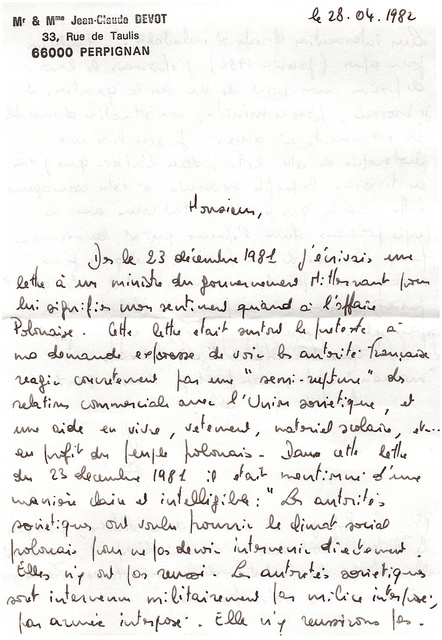 Mr & Mme Jean-Claude DEVOT
33, Rue de Taulis
66000 PERPIGNAN
le 28.04.1982
Monsieur,
Dès le 23 décembre 1981 j'écrivais une
lettre à un ministre du gouvernement Mitterrant pour
lui signifier mon sentiment quand à l'affaire
Polonaise. Cette lettre était surtout le pretexte à
ma demande expresse de voir les autorité française
réagir concretement par une "semi-rupture" des
relations commerciales avec l'Union soviétique, et
une aide en vivre, vetement, materiel scolaire, etc...
au profit du peuple polonais. Dans cette lettre
du 23 décembre 1981 il était mentionné d'une
manière claire et intelligible: "Les autorités
soviétiques ont voulu pourrir le climat social
polonais pour ne pas devoir intervenir directement.
Elles n'y ont pas reussi. Les autorités soviétiques
sont intervenu militairement par milice interposé,
par armée interposé. Elle n'y reussirons pas.